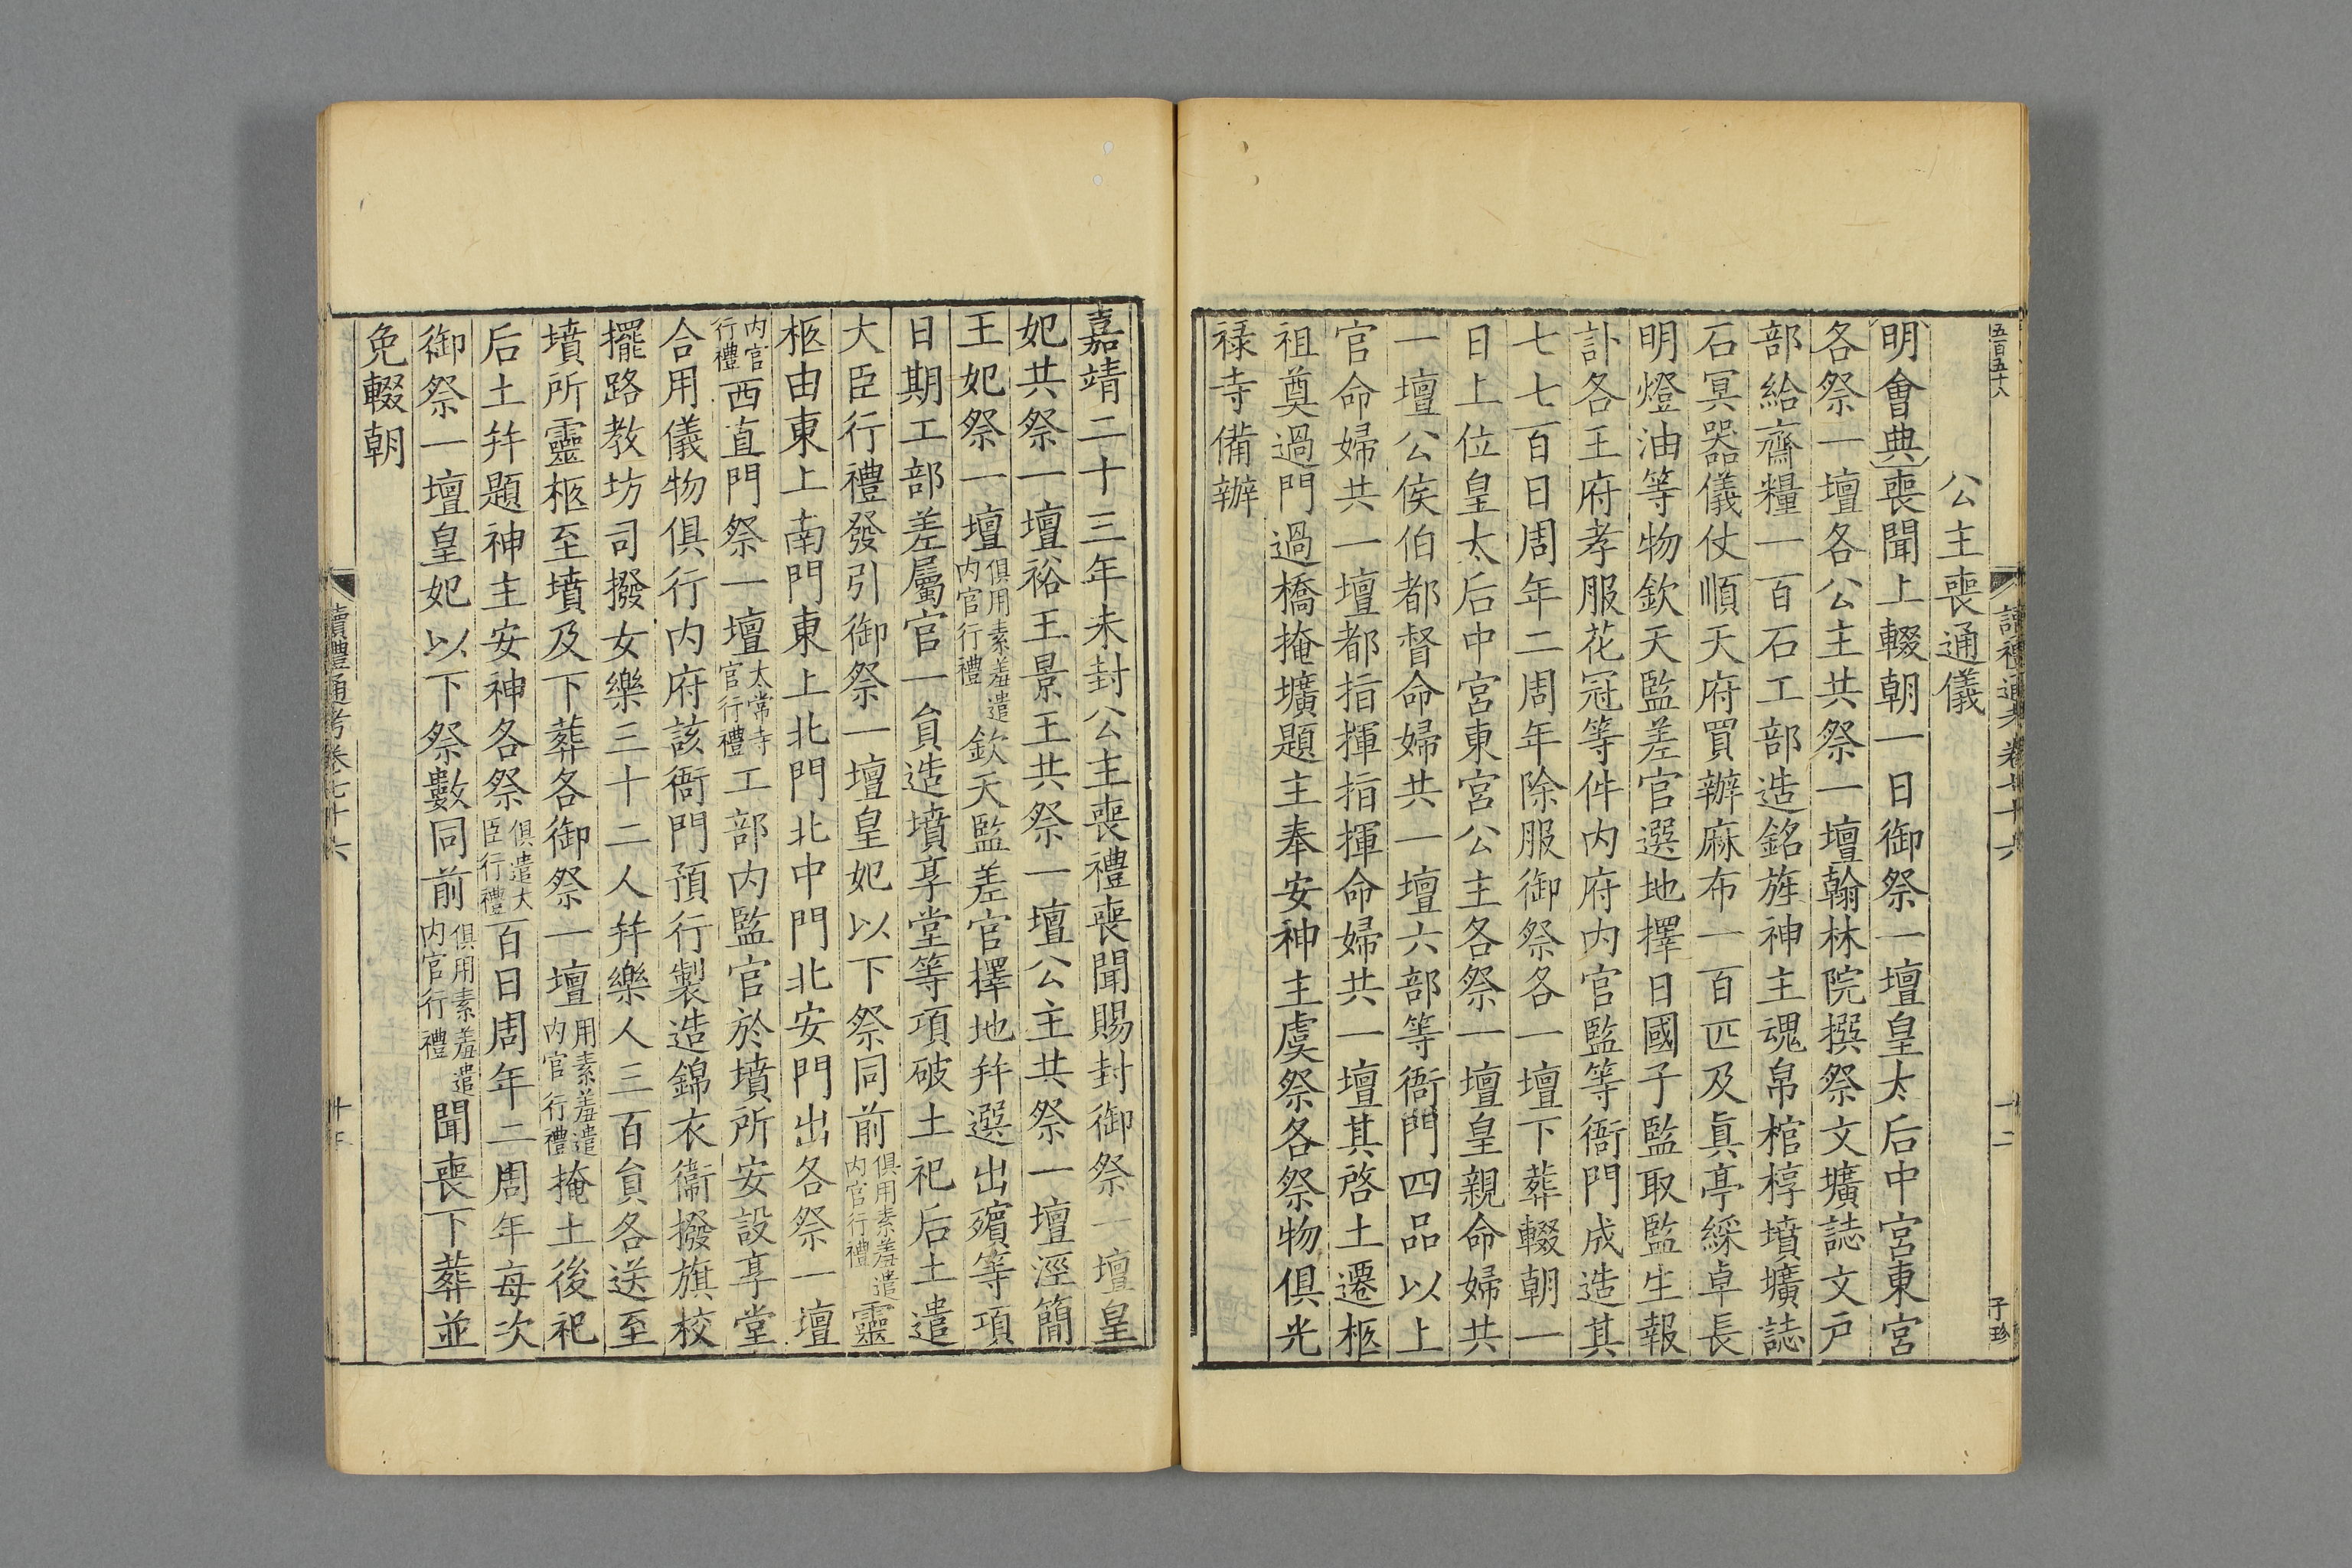 五百五十八
讀禮通考卷七十六
十二
子珍
公主喪通儀
明會典喪聞上輟朝一日御祭一壇皇太后中宮東宮
各祭一壇各公主共祭一壇翰林院撰祭文壙誌文戸
部給齋糧一百石工部造銘旌神主魂帛棺椁墳壙誌
石冥器儀仗順天府買辦麻布一百匹及眞亭綵卓長
明燈油等物欽天監差官選地擇日國子監取監生報
訃各王府孝服花冠等件内府内官監等衙門成造其
七七百日周年二周年除服御祭各一壇下葬輟朝一
日上位皇太后中宮東宮公主各祭一壇皇親命婦共
一壇公侯伯都督命婦共一壇六部等衙門四品以上
官命婦共一壇都指揮指揮命婦共一壇其啓土遷柩
祖奠過門過橋掩壙題主奉安神主虞祭各祭物俱光
祿寺備辦
嘉靖二十三年未封公主喪禮喪聞賜封御祭一壇皇
妃共祭一壇裕王景王共祭一壇公主共祭一壇涇簡
王妃祭一壇俱用素羞遣内官行禮欽天監差官擇地幷選出殯等項
日期工部差屬官一員造墳享堂等項破土祀后土遣
大臣行禮發引御祭一壇皇妃以下祭同前俱用素羞遣内官行禮靈
柩由東上南門東上北門北中門北安門出各祭一壇
内官行禮西直門祭一壇太常寺官行禮工部内監官於墳所安設享堂
合用儀物俱行内府該衙門預行製造錦衣衞撥旗校
擺路教坊司撥女樂三十二人幷樂人三百員各送至
墳所靈柩至墳及下葬各御祭一壇用素羞遣内官行禮掩土後祀
后土幷題神主安神各祭俱遣大臣行禮百日周年二周年每次
御祭一壇皇妃以下祭數同前俱用素羞遣内官行禮聞喪下葬並
免輟朝
讀禮通考卷七十六